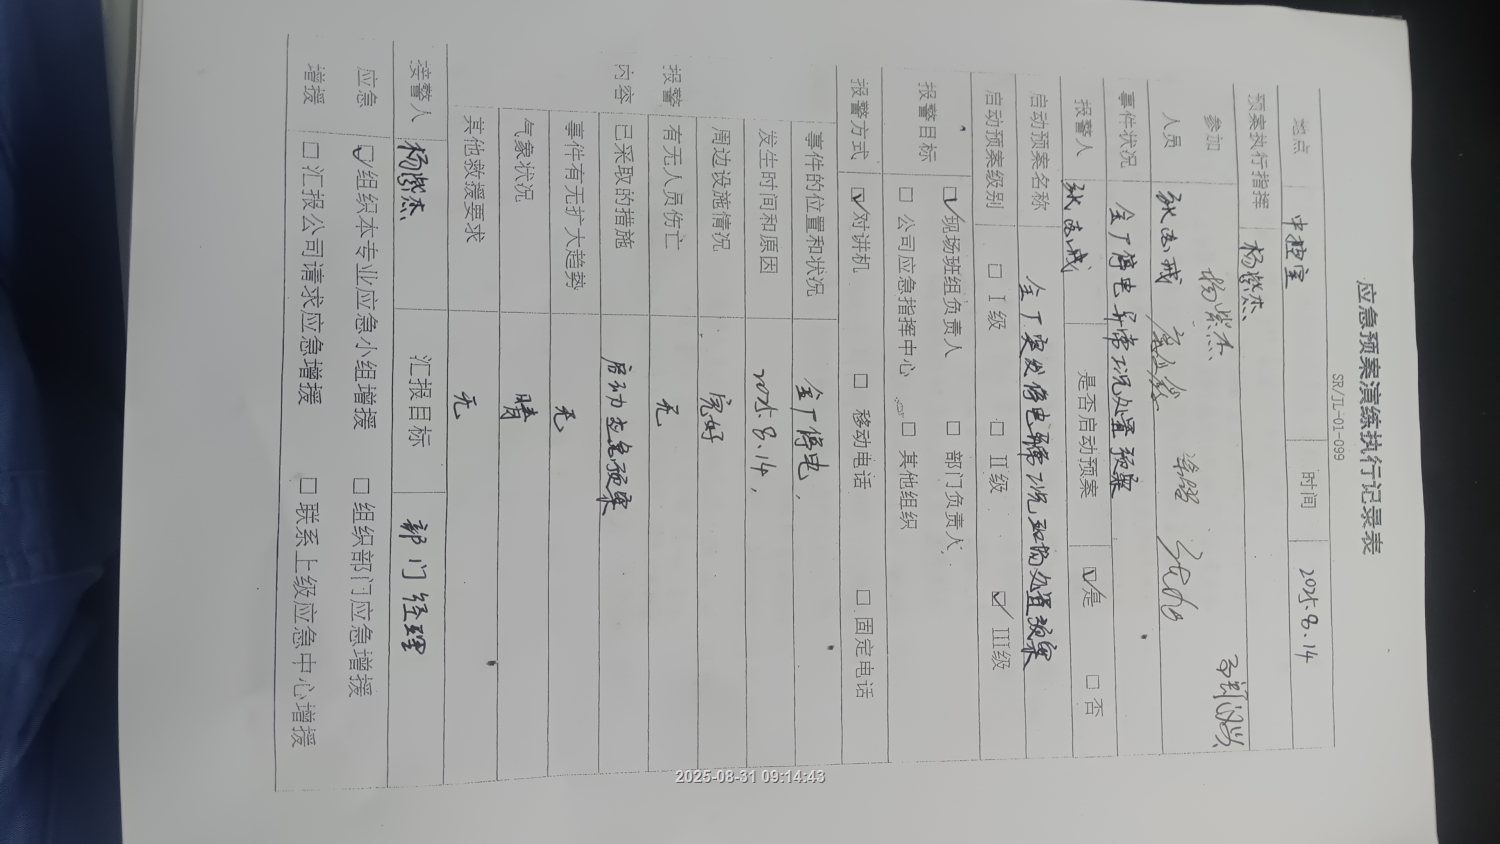 应急预案演练执行记录表
SR/JL-01-099
地点 中控室 时间 2025.8.14
预案执行指挥 杨紫杰
参加 杨紫杰
人员
事件状况 全厂停电异常状况处置预案
报警人 是否启动预案 ☑是 □否
启动预案名称 全厂突发停电异常状况现场处置预案
启动预案级别 □ I级 □ II级 ☑ III级
报警目标 ☑现场班组负责人 □ 部门负责人
□ 公司应急指挥中心 □ 其他组织
报警方式 ☑对讲机 □ 移动电话 □ 固定电话
报警
内容
事件的位置和状况 全厂停电,
发生时间和原因 2025.8.14,
周边设施情况 完好
有无人员伤亡 无
已采取的措施 启动应急预案
事件有无扩大趋势 无
气象状况 晴
其他救援要求 无
接警人 杨紫杰 汇报目标 部门经理
应急 ☑组织本专业应急小组增援 □ 组织部门应急增援
增援 □ 汇报公司请求应急增援 □ 联系上级应急中心增援
2025-08-31 09:14:43